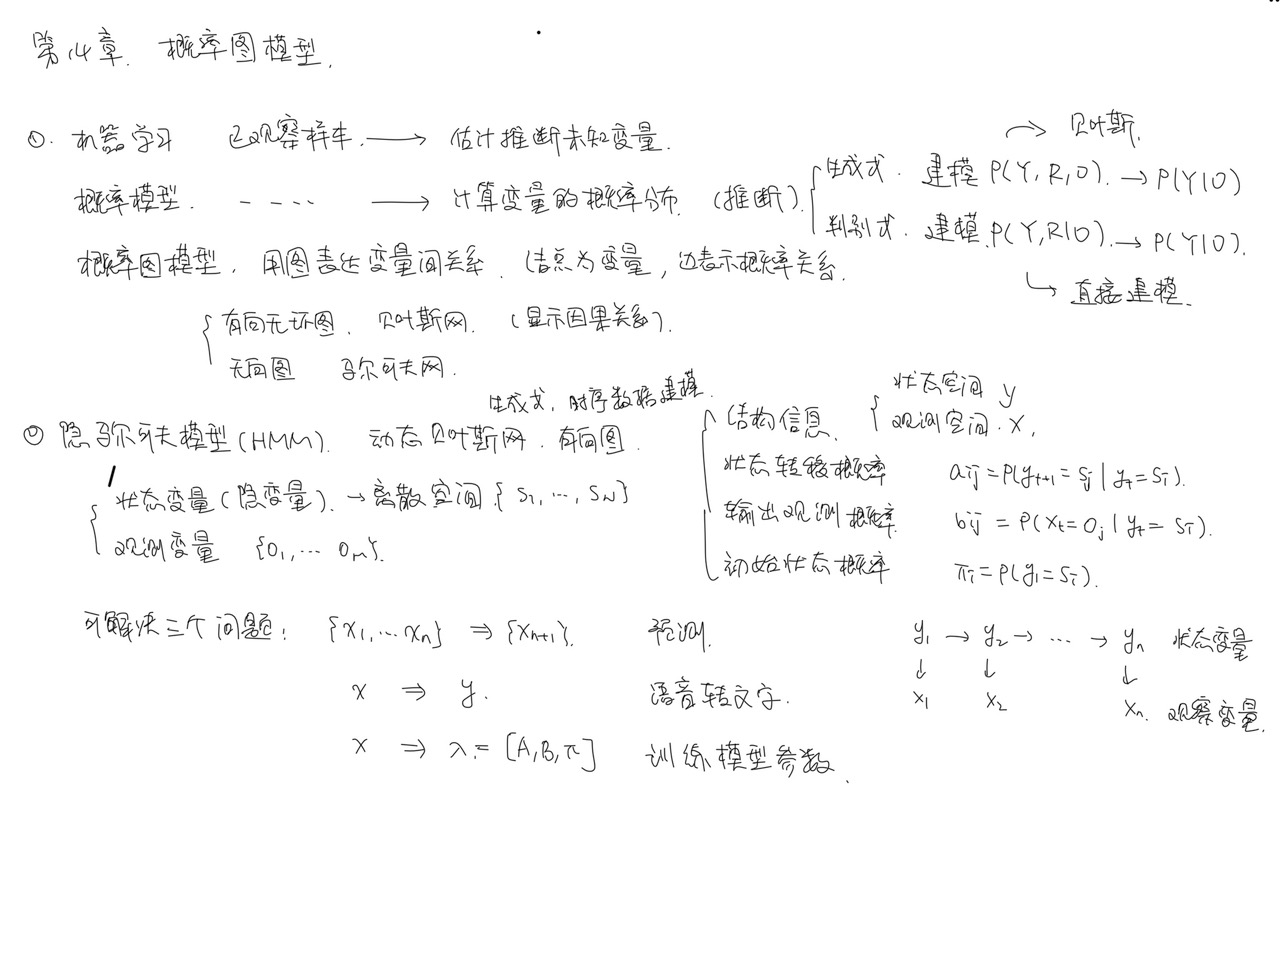 第14章. 概率图模型.
①. 机器学习 已观察样本. → 估计推断未知变量.
→ 贝叶斯.
概率模型. - - - - → 计算变量的概率分布. (推断).
生成式. 建模 P(Y, R, O). → P(Y|O)
判别式. 建模. P(Y, R|O). → P(Y|O).
→ 直接建模.
概率图模型. 用图表达变量间关系. (结点为变量, 边表示概率关系.
有向无环图. 贝叶斯网. (显示因果关系).
无向图 马尔可夫网.
生成式, 时序数据建模.
② 隐马尔可夫模型(HMM). 动态贝叶斯网. 有向图
状态变量(隐变量). → 离散空间 { S1, ..., SN}
观测变量 {O1, ... OM}.
结构信息. 状态空间 y
观测空间. x.
状态转移概率 aij = P(yt+1 = Sj | yt = Si).
输出观测概率. bij = P(xt = Oj | yt = Si).
初始状态概率 πi = P(y1 = Si).
可解决三个问题: {x1, ... xn} ⇒ {xn+1}. 预测.
x ⇒ y. 语音转文字.
x ⇒ λ = [A, B, π] 训练模型参数.
y1 → y2 → ... → yn 状态变量
↓ ↓ ↓
x1 x2 xn. 观察变量.